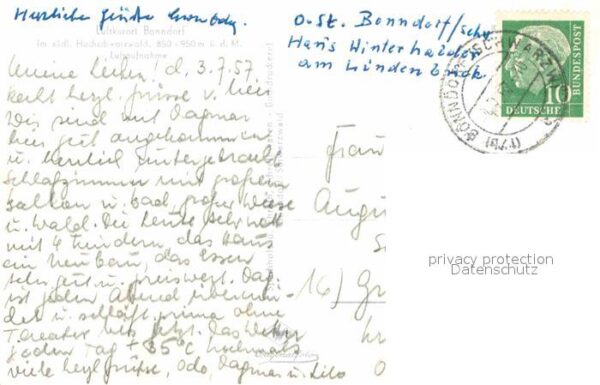 Herzliche Grüße
O-St. Bonndorf/Schw.
Hans Winterhalder
am Lindenbuck
Luftkurort Bonndorf
im südl. Hochschwarzwald, 850 - 950 m ü. d. M.
Luftaufnahme
BONNDORF SCHWARZW
(17b)
10
DEUTSCHE BUNDESPOST
Meine Lieben! d. 3.7.57
recht herzl. Grüsse v. hier
Wir sind mit Dagmar
hier gut angekommen
u. herrlich untergebracht
Schlafzimmer mit großem
Balkon u. Bad, große Wiese
u. Wald. Die Leute sehr nett
mit 4 Kindern, das Haus
ein Neubau, das Essen
sehr gut u. preiswert. Dag.
ist jeden Abend
u. schläft prima ohne
Theater bis jetzt. Das Wetter
jeden Tag + 35°C nochmals
viele herzl. Grüße, Odo, Dagmar u. Lilo
Frau
Augu
16) Gr
privacy protection
Datenschutz